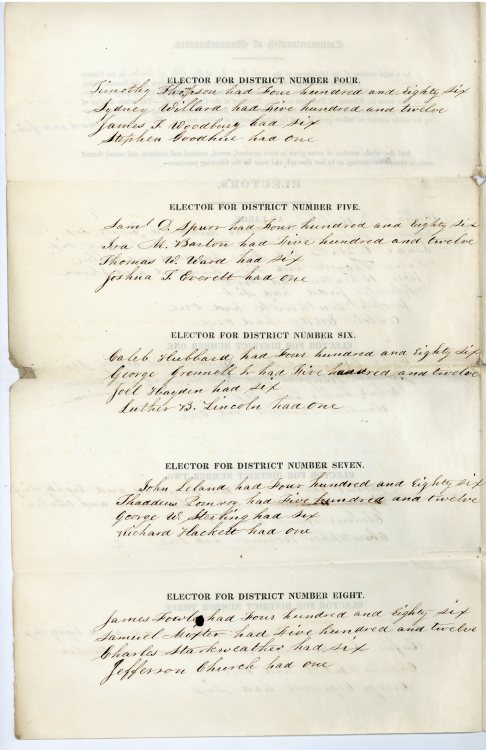 ELECTOR FOR DISTRICT NUMBER FOUR.
Timothy Thipson had Four hundred and Eighty six
Sydney Willard had Five hundred and twelve
James T. Woodbury had six
Stephen Goodhue had one
ELECTOR FOR DISTRICT NUMBER FIVE.
Saml D. Spurr had Four hundred and Eighty six
Ira M. Barton had Five hundred and twelve
Thomas W. Ward had six
Joshua T. Everett had one
ELECTOR FOR DISTRICT NUMBER SIX.
Caleb Hubbard had Four hundred and Eighty six
George Grennell Jr had Five hundred and twelve
Joel Hayden had six
Luther B. Lincoln had one
ELECTOR FOR DISTRICT NUMBER SEVEN.
John Leland had Four hundred and Eighty six
Thaddeus Pomroy had Five hundred and twelve
George W. Sterling had six
Richard Hackett had one
ELECTOR FOR DISTRICT NUMBER EIGHT.
James Fowler had Four hundred and Eighty six
Samuel Mixter had Five hundred and twelve
Charles Starkweather had six
Jefferson Church had one